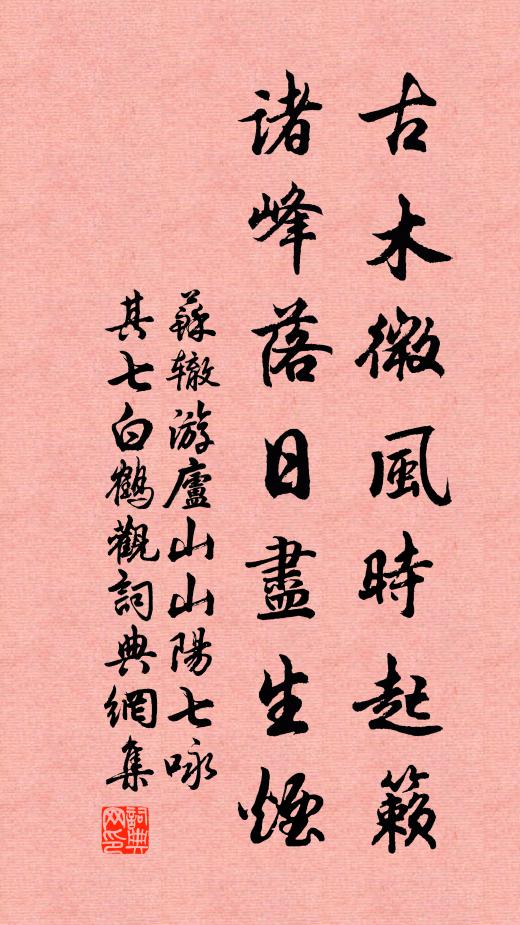 古木微風時起籟
諸峰落日盡生煙
蘇辙游廬山山陽七咏
其七白鶴觀詞典網集
詞典网印